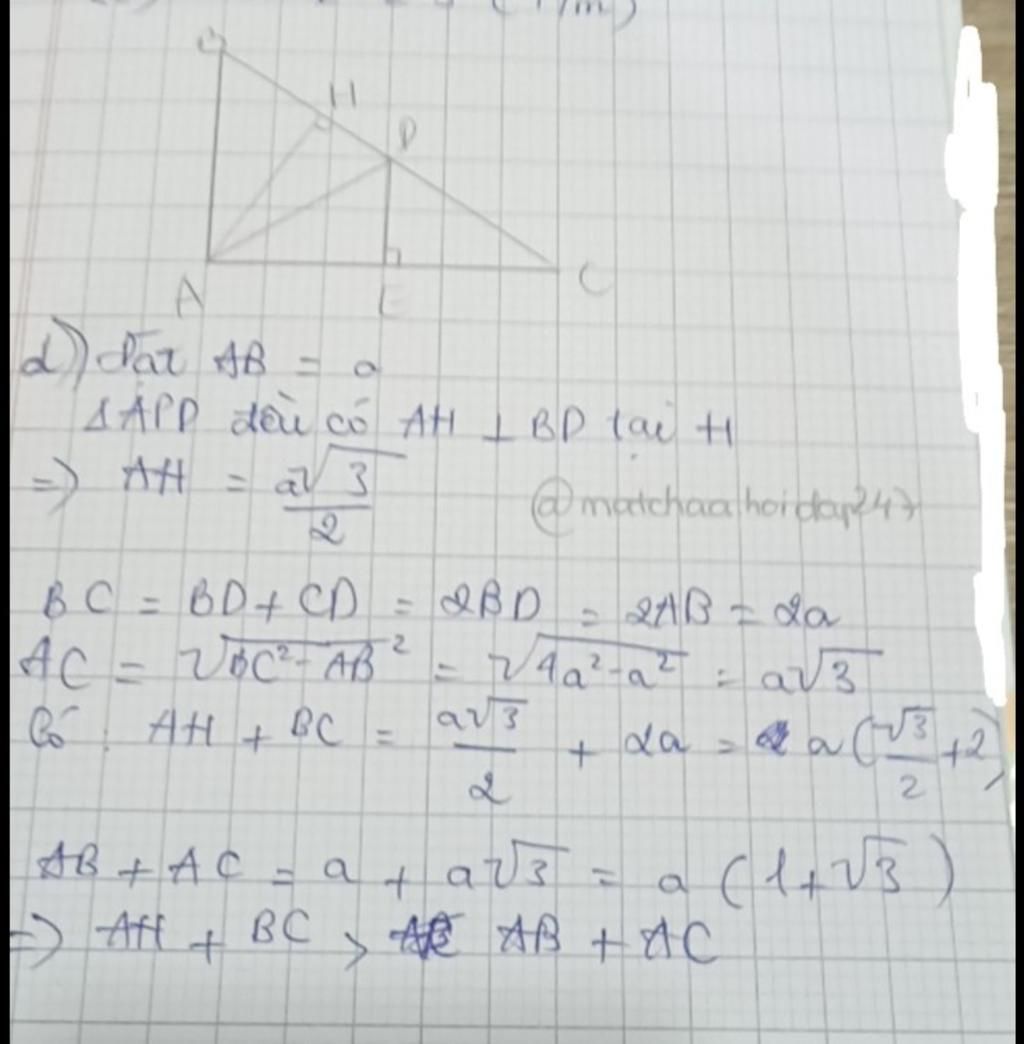 H
D
A
E
C
d) Đặt AB = a
ΔABD đều có AH ⊥ BD tại H
=> AH = a√3/2
@matchaahoidap247
BC = BD + CD = 2BD = 2AB = 2a
AC = √BC² - AB² = √4a² - a² = a√3
Có: AH + BC = a√3/2 + 2a = a(√3/2 + 2)
AB + AC = a + a√3 = a(1 + √3)
=> AH + BC > AB + AC